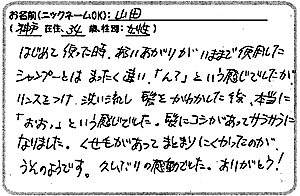 お名前(ニックネームOK): 山田
(神戸 在住、34 歳、性別: 女性)
はじめて使った時、洗いあがりが いままで使用した
シャンプーとは まったく違い、「ん?」という感じでしたが
リンスをつけ、洗い流し 髪をかわかした後、本当に
「おぉ。」という感じでした。髪にコシがあってサラサラに
なりました。くせ毛があってまとまりにくかったのが
うそのようです。久しぶりの感動でした。ありがとう!